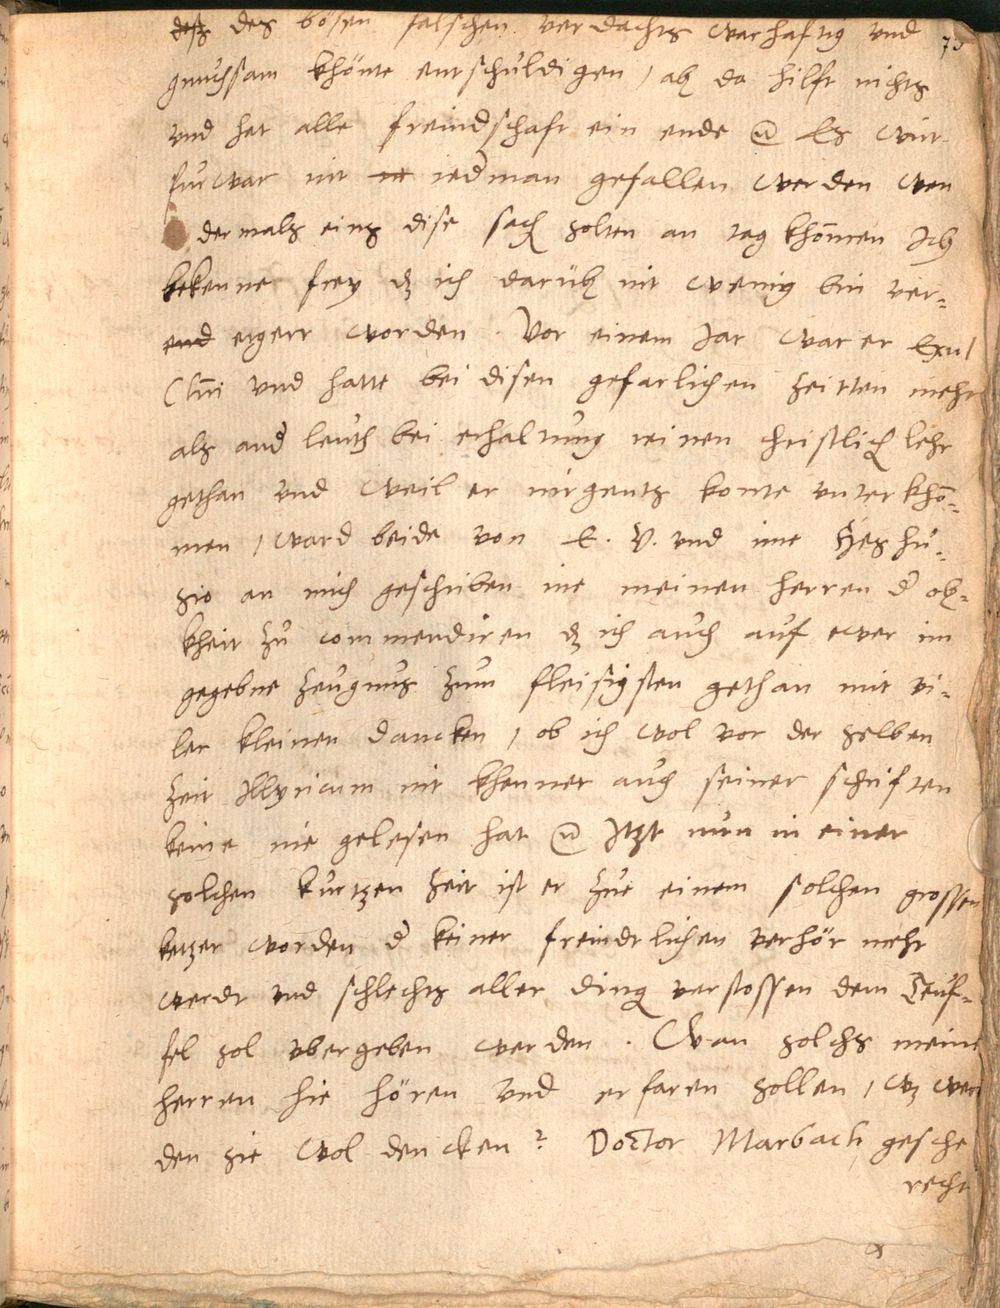 75
des des bösen falschen verdachts warhaftig und
gnuchsam khönte entschuldigen / ab da hilft nichts
und het alle freindschaft ein ende @ Es wir
fürwar nit nit iedman gefallen werden wen
dermals eins dise sach solten an tag khomen Ich
bekenne frey dz ich darüb nit wenig bin ver-
end ergert worden. Vor einem Jar war er Exul
Christi und hatte bei disen gefarlichen Zeitten mehr
als and leuth bei erhaltung reinen christlich lehr
gethan und weil er nirgents konte unterkho-
men / ward beide von E. V. und ime Heshu-
sio an mich geschriben ine meinen herren d ob-
kheit zu commendiren dz ich auch auf ewer im
gegebne zeugnus zum fleisigsten gethan mit vi-
ler kleinen dancken / ob ich wol vor der selben
Zeit Illyricum nit khennet auch seiner schriften
keine nie gelesen hat @ Itzt nun in einer
solchen kurtzen Zeit ist er zue einem solchen grossen
ketzer worden d keiner freindtlichen verhör mehr
werdt und schlechts aller ding verstossen dem Teuf-
fel sol ubergeben werden. Wan solchs meine
herren hie hören und erfaren sollen / wz wer
den sie wol dencken? Doctor Marbach gesche
recht